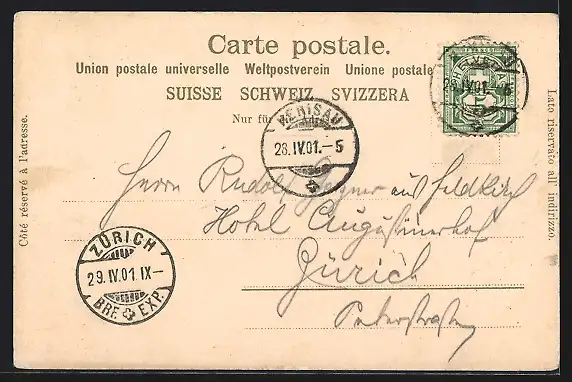 Carte postale.
Union postale universelle Weltpostverein Unione postale
SUISSE SCHWEIZ SVIZZERA
Nur für die Adresse
Côté réservé à l'adresse.
Lato riservato all' indirizzo.
HERISAU
28.IV.01.-5
HERISAU
28.IV.01.-5
FRANCO
Herrn Rudolf aus Feldkirch
Hotel Augustinerhof
Zürich
Peterstrasse
ZÜRICH
29.IV.01.IX-
BRF. EXP.